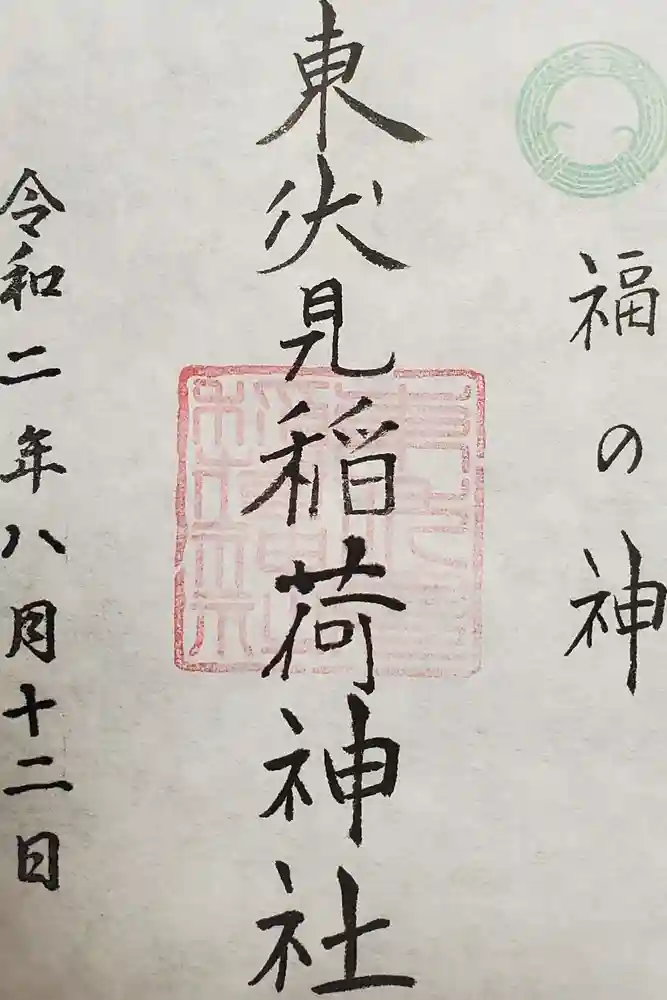 福の神
東伏見稲荷神社
令和二年八月十二日